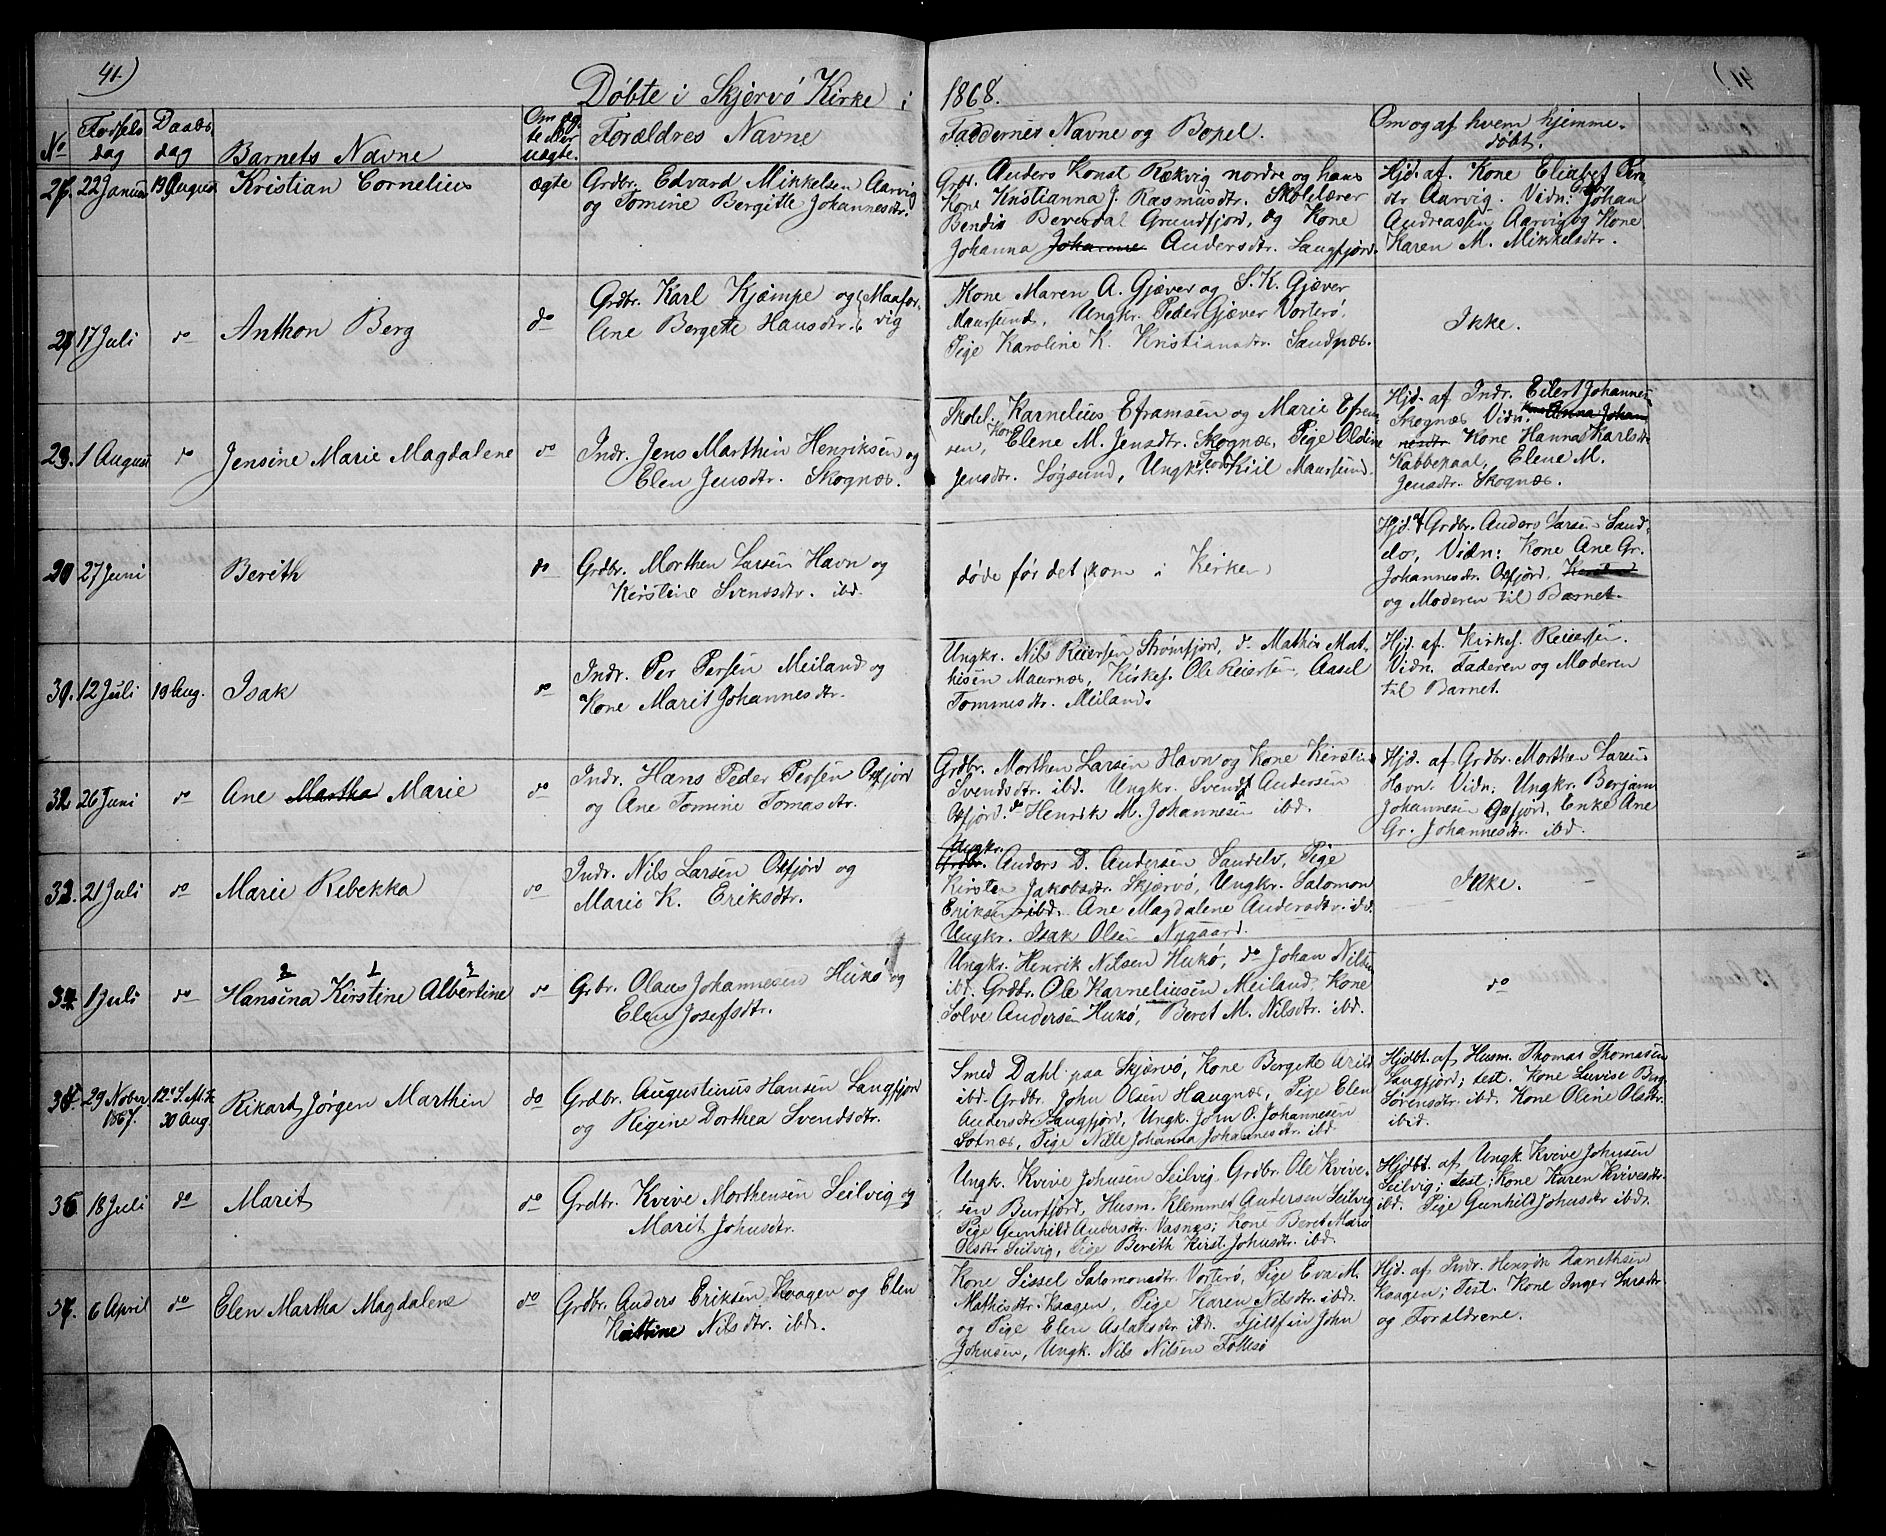 41.)
Døbte i Skjervö Kirke i 1868.
No Fødsels dag Daabs dag Barnets Navne Om ægte eller uægte. Forældres Navne Faddernes Navne og Bopel. Om og af hvem hjemmedøbt.
22 Januar 19 August Kristian Cornelius ægte Grdbr. Edvard Mikkelsen Aarvig
og Tomine Bergitte Johannesdtr.
Grdb. Anders Konst Rækvig nordre og hans
Kone Kristianna J. Rasmusdtr. Skolelærer
Bendix Beverdal Grundfjord, og Kone
Johanna Johanne Andersdtr. Langfjord.
Hjd. af. Kone Elisabet Per
dtr Aarvig. Vidn: Grdbr Johan
Andreassen Aarvig og Kone
Karen M. Mikkelsdtr.
17 Juli do Anthon Berg do Grdbr. Karl Kjæmpe og
Ane Bergette Hansdtr. Maaforvig
Kone Maren A. Gjæver og S. K. Gjæver
Maursund, Ungkr. Peder Gjæver Vorterö.
Pige Karoline K. Kristiansdtr. Sandnæs.
Ikke.
29. 1 August do Jensine Marie Magdalene do Indr. Jens Marthin Henriksen og
Elen Jensdtr. Skognæs.
Skolel. Karnelius Eframsen og Marie Efrem
sen, Kone Elene M. Jensdtr. Skognæs, Pige Oldine
Jensdtr. Løgsund, Ungkr. Kiil Maursund.
Hjd. af Indr. Eilert Johannes
Skognæs Vidn. Kone Anna Johan
nesdtr Kone Hanna Karlsdtr
Kabbepaal, Elene M.
Jensdtr. Skognæs.
27 Juni Berith do Grdbr. Morthen Larsen Havn og
Kirstine Svendsdtr. ibd.
døde før det kom i Kirken
Hjd. af Grdbr. Anders Larsen Sand
elv, Vidn: Kone Ane Gr.
Johannesdtr. Oxfjord,
og Moderen til Barnet.
12 Juli 19 Aug. Isak do Indr. Per Persen Meiland og
Kone Marit Johannesdtr.
Ungkr. Nils Reiersen Strömfjord, do Mathis Mat-
hisen Maurnæs, Kirkes. Ole Reiersen, Aasel
Tommesdtr. Meiland.
Hjd. af. Kirkes. Reiersen.
Vidn. Faderen og Moderen
til Barnet.
32. 26 Juni do Ane Martha Marie do Indr. Hans Peder Persen Oxfjord
og Ane Tomine Tomasdtr.
Grdbr. Morthen Larsen Havn og Kone Kirstine
Svendsdtr. ibd. Ungkr. Svend Andersen
Oxfjord. do Henrik M. Johannesen ibd.
Hjd. af Grdbr. Morthen Larsen
Havn. Vidn: Ungkr. Benjam
Johannesen Oxfjord, Enke Ane
Gr. Johannesdtr. ibd.
33. 21 Juli do Marie Rebekka do Indr. Nils Larsen Oxfjord og
Marie K. Eriksdtr.
Ungkr.
Grdbr. Anders D. Andersen Sandelv, Pige
Kirsten Jakobsdtr. Skjærvö, Ungkr. Salomon
Eriksen ibd. Ane Magdalene Andersdtr. ibd.
Ungkr. Isak Olsen Nygaard.
Ikke.
34. 1 Juli do Hansina Kirstine Albertine do Grbr. Olaus Johannesen Hukö og
Elen Josefsdtr.
Ungkr. Henrik Nilsen Hukö, do Johan Nilsen
ibd. Grdbr. Ole Karneliusen Meiland, Kone
Solve Andersen Hukö, Beret M. Nilsdtr. ibd.
do
35. 29 Nober. 1867. 12. S. M. Tr. 30 Aug. Rikart Jørgen Marthin do Grdbr. Augustinus Hansen Langfjord
og Regine Dorthea Svendsdtr.
Smed Dahl paa Skjærvö, Kone Bergette
ibd. Grdbr. John Olsen Haugnæs, Pige Elen
Andersdtr Langfjord, Ungk. John O. Johannesen
Sotnæs, Pige Nille Johanna Johannesdtr. ibd
Hjdbt. af Husm. Thomas Thomasen
Langfjord; test. Kone Luvise Berg
Sørensdtr. ibd. Kone Oline Olsdtr.
ibid.
36 18 Juli do Marit do Grdbr. Kvive Morthensen Seilvig og
Marit Johusdtr.
Ungk. Kvive Johusen Seilvig. Grdbr. Ole Kvive-
sen Burfjord, Husm. Klemmet Andersen Seilvig
Pige Gunhild Andersdtr. Vasnæs; Kone Beret Marie
Olsdtr Seilvig, Pige Berith Kirst. Johusdtr. ibd.
Hjdbt. af Ungk. Kvive Johusen
Seilvig; test: Kone Karen Kvivesdtr.
ibd. Pige Gunhild Johusdtr ibd.
37. 6 April do Elen Martha Magdalene do Grdbr. Anders Eriksen Kaagen og Elen
Kattrine Nilsdtr. ibd.
Kone Sissel Salomonsdtr. Vorterö, Pige Eva M.
Mathisdtr. Kaagen, Pige Karen Nilsdtr. ibd.
og Pige Elen Aslaksdtr ibd. John
Johnsen, Ungk. Nils Nilsen Follesö
Hjd. af Indr. Henrik Zanithsen
Kaagen; Test. Kone Inger Larsdtr.
og Forældrene.